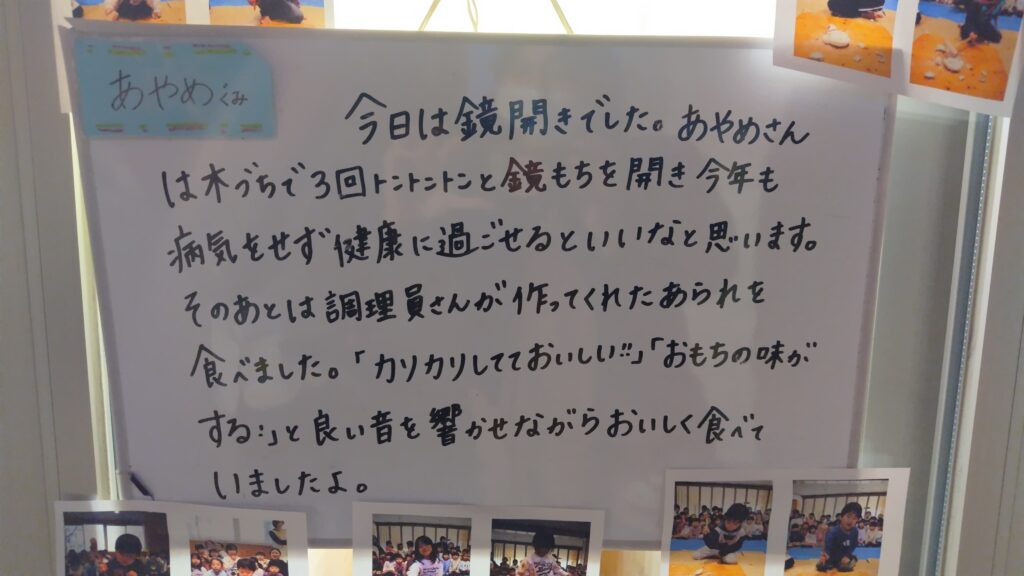 あやめぐみ
今日は鏡開きでした。あやめさん
は木づちで3回トントントンと鏡もちを開き今年も
病気をせず健康に過ごせるといいなと思います。
そのあとは調理員さんが作ってくれたあられを
食べました。「カリカリしてておいしい!!」「おもちの味が
する:」と良い音を響かせながらおいしく食べて
いましたよ。